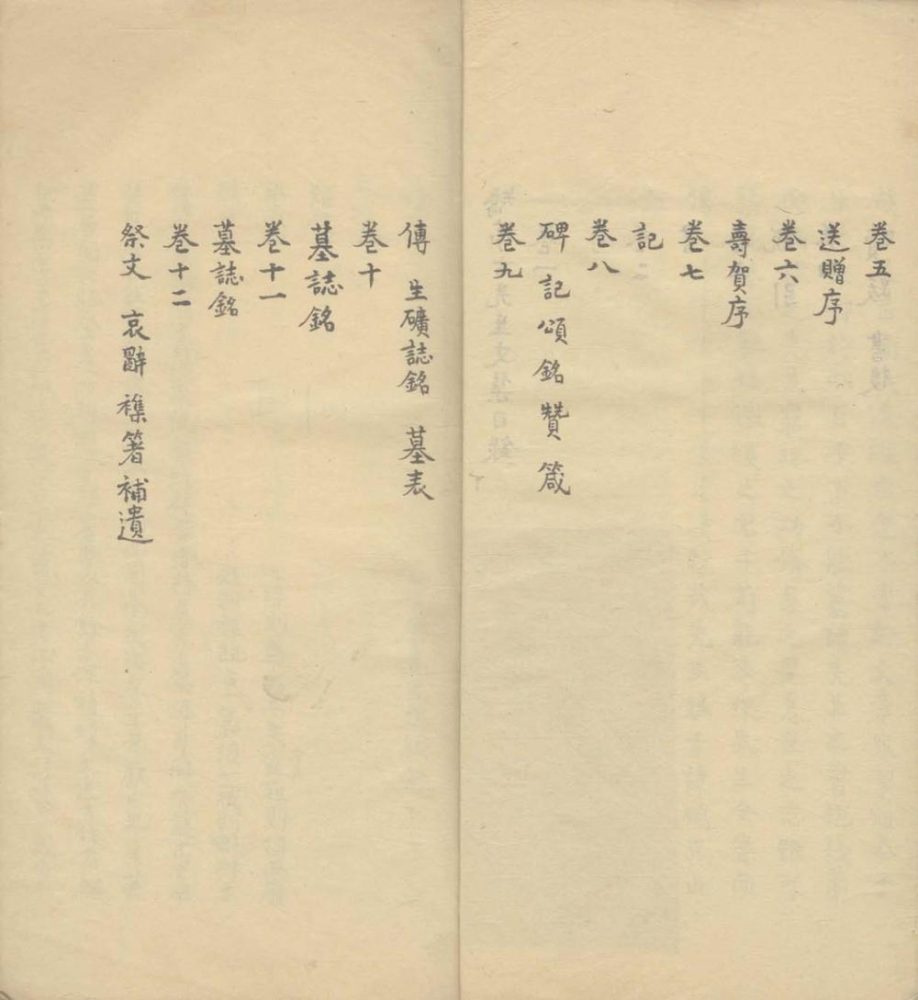 卷五
送贈序
卷六
壽賀序
卷七
記
卷八
碑記頌銘贊箴
卷九
傳 生礦誌銘 墓表
卷十
墓誌銘
卷十一
墓誌銘
卷十二
祭文 哀辭 襍箸補遺